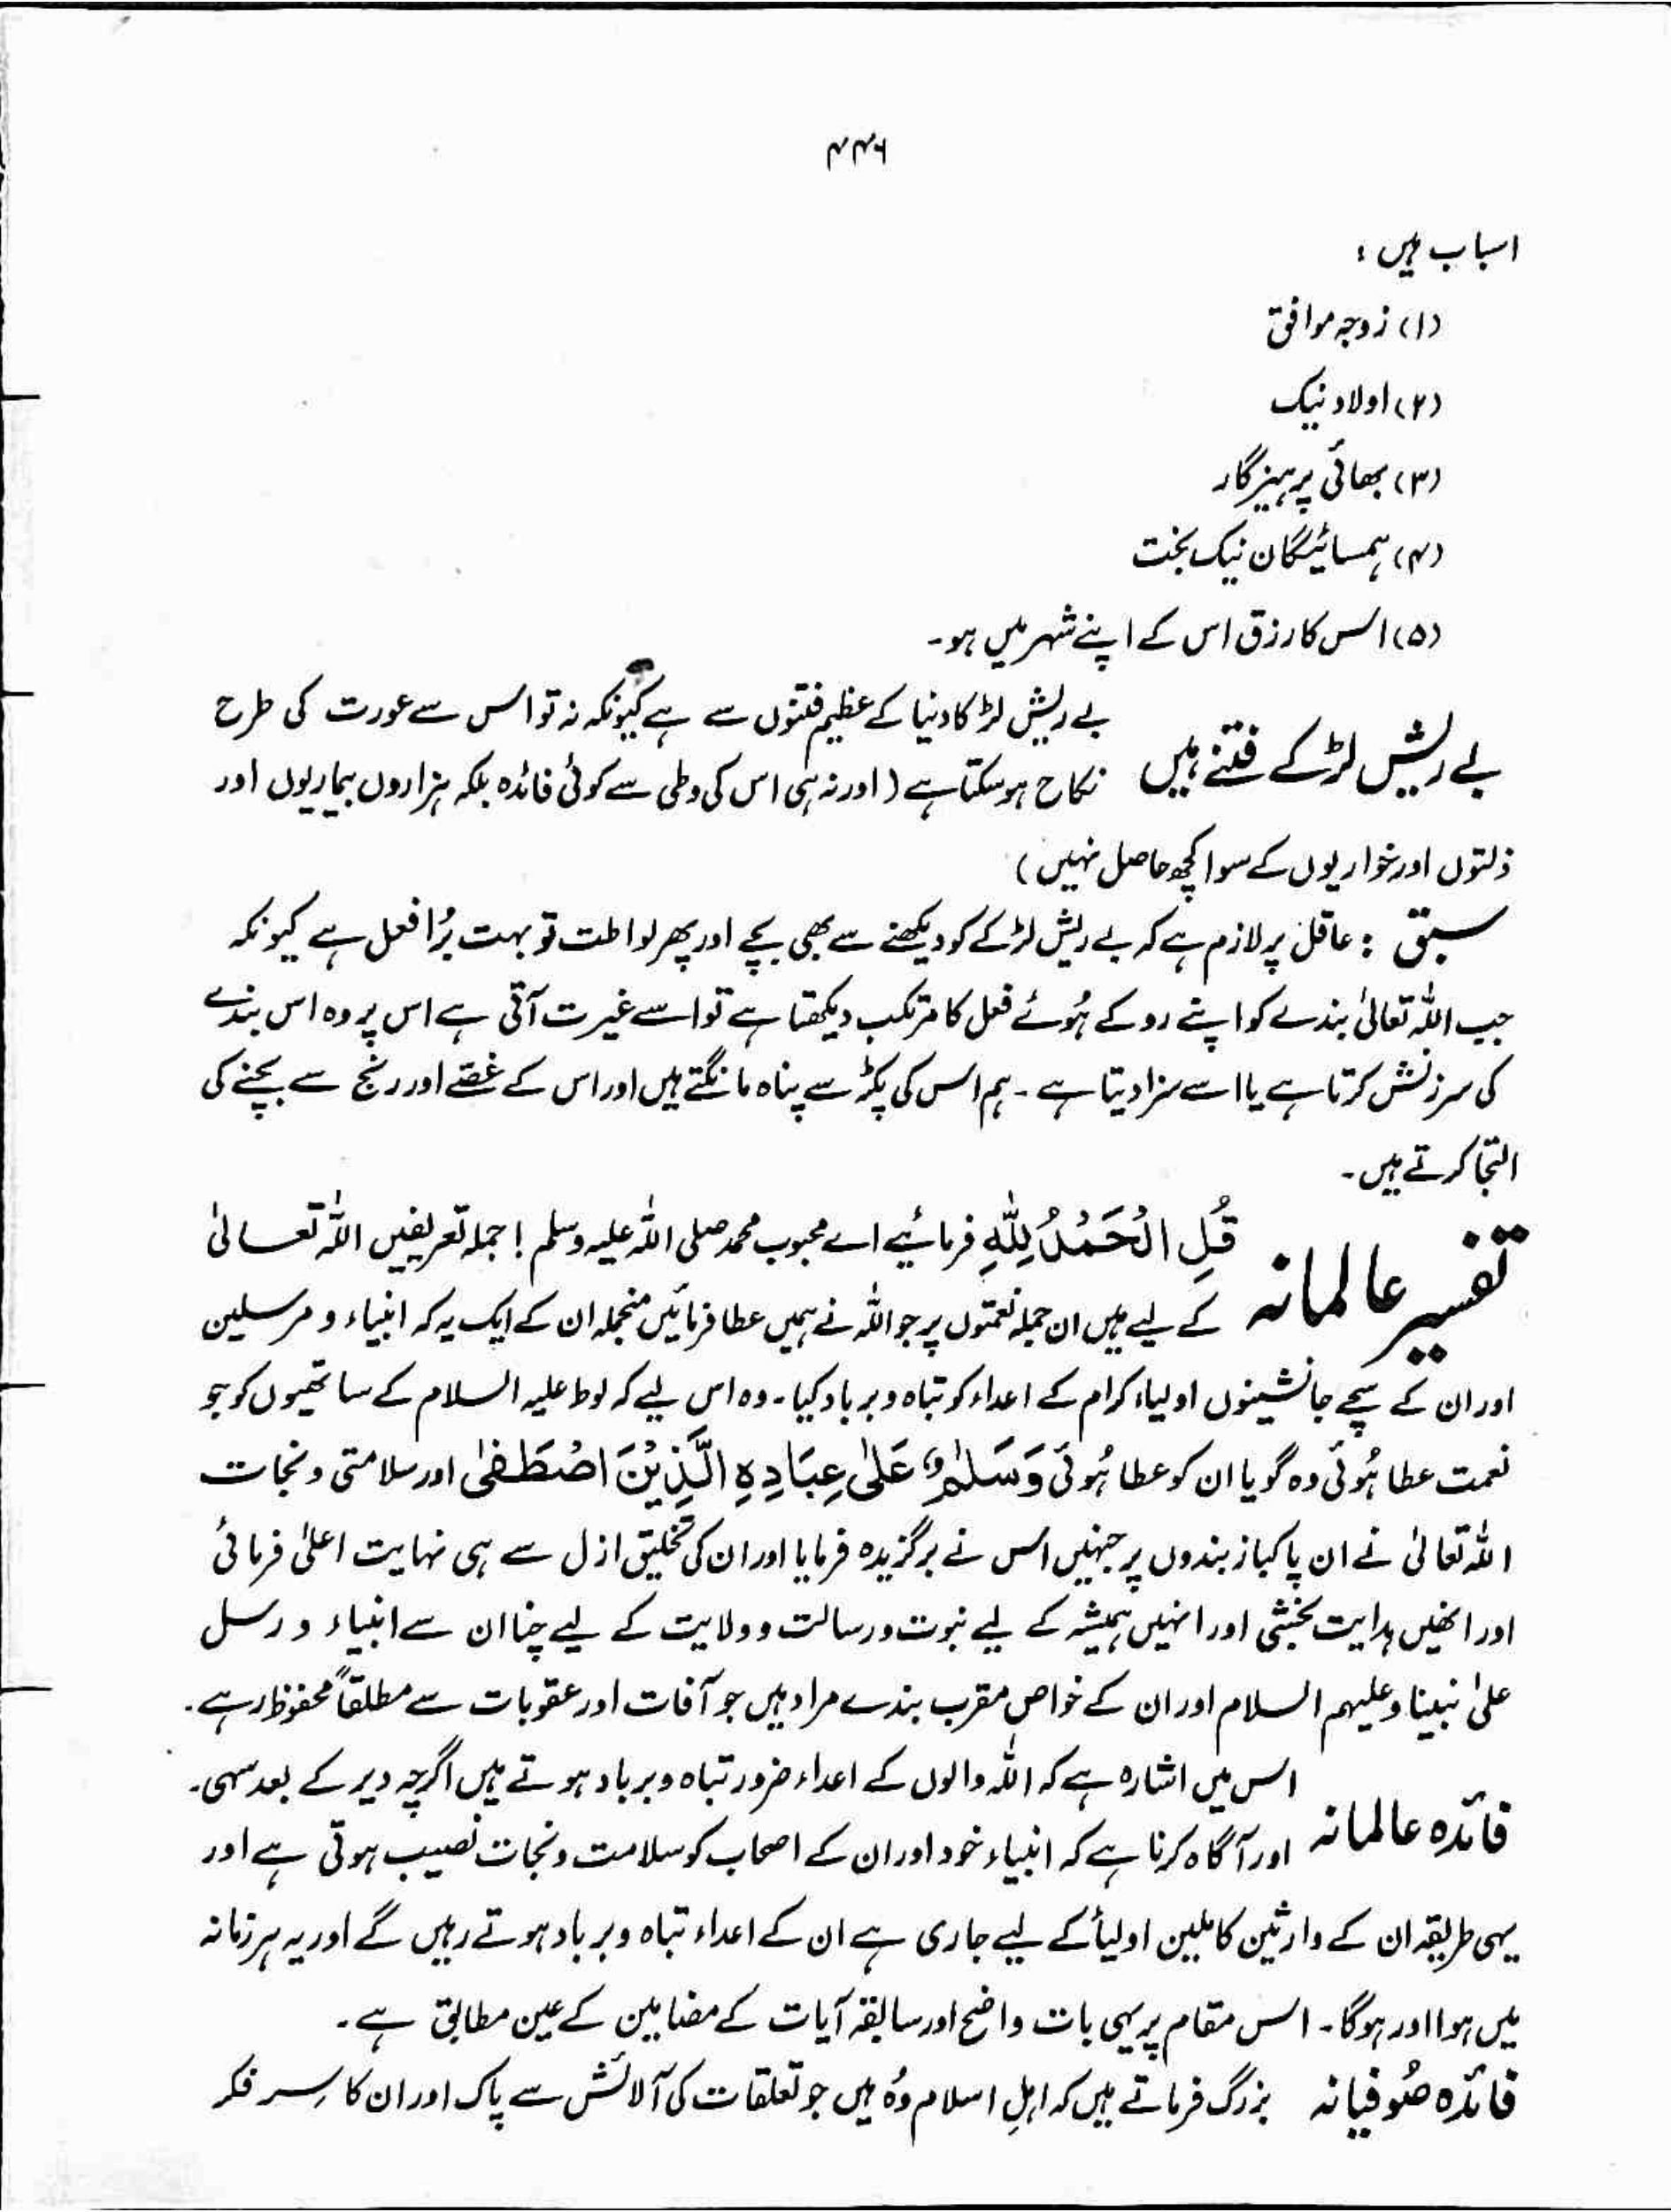 ۴۴۶
اسباب ہیں :
(۱) زوجہ موافق
(۲) اولاد نیک
(۳) بھائی پرہیزگار
(۴) ہمسائیگان نیک بخت
(۵) اس کا رزق اس کے اپنے شہر میں ہو۔
بے ریش لڑکے فتنے ہیں
بے ریش لڑکا دنیا کے عظیم فتنوں سے ہے کیونکہ نہ تو اس سے عورت کی طرح
نکاح ہو سکتا ہے (اور نہ ہی اس کی وطی سے کوئی فائدہ بلکہ ہزاروں بیماریوں اور
ذلتوں اور خواریوں کے سوا کچھ حاصل نہیں)
سبق : عاقل پر لازم ہے کہ بے ریش لڑکے کو دیکھنے سے بھی بچے اور پھر لواطت تو بہت بُرا فعل ہے کیونکہ
جب اللہ تعالیٰ بندے کو اپنے روکے ہُوئے فعل کا مرتکب دیکھتا ہے تو اسے غیرت آتی ہے اس پر وہ اس بندے
کی سرزنش کرتا ہے یا اسے سزا دیتا ہے ۔ ہم اس کی پکڑ سے پناہ مانگتے ہیں اور اس کے غصّے اور رنج سے بچنے کی
التجا کرتے ہیں۔
تفسیر عالمانہ
قُلِ الْحَمْدُ لِلّٰهِ فرمائیے اے محبوب محمد صلی اللہ علیہ وسلم ! جملہ تعریفیں اللہ تعالیٰ
کے لیے ہیں ان جملہ نعمتوں پر جو اللہ نے ہمیں عطا فرمائیں منجملہ ان کے ایک یہ کہ انبیاء و مرسلین
اور ان کے سچے جانشینوں اولیاء کرام کے اعداء کو تباہ و برباد کیا ۔ وہ اس لیے کہ لوط علیہ السلام کے ساتھیوں کو جو
نعمت عطا ہُوئی وہ گویا ان کو عطا ہُوئی وَسَلٰمٌ عَلٰى عِبَادِهِ الَّذِيْنَ اصْطَفٰى اور سلامتی و نجات
اللہ تعالیٰ نے ان پاکباز بندوں پر جنہیں اس نے برگزیدہ فرمایا اور ان کی تخلیق ازل سے ہی نہایت اعلیٰ فرمائی
اور انھیں ہدایت بخشی اور انہیں ہمیشہ کے لیے نبوت و رسالت و ولایت کے لیے چنا ان سے انبیاء و رسل
علیٰ نبینا و علیہم السلام اور ان کے خواص مقرب بندے مراد ہیں جو آفات اور عقوبات سے مطلقاً محفوظ رہے ۔
فائدہ عالمانہ
اس میں اشارہ ہے کہ اللہ والوں کے اعداء ضرور تباہ و برباد ہوتے ہیں اگرچہ دیر کے بعد سہی۔
اور آگاہ کرنا ہے کہ انبیاء خود اور ان کے اصحاب کو سلامت و نجات نصیب ہوتی ہے اور
یہی طریقہ ان کے وارثین کاملین اولیأ کے لیے جاری ہے ان کے اعداء تباہ و برباد ہوتے رہیں گے اور یہ ہر زمانہ
میں ہوا اور ہوگا ۔ اس مقام پر یہی بات واضح اور سابقہ آیات کے مضامین کے عین مطابق ہے ۔
فائدہ صُوفیانہ بزرگ فرماتے ہیں کہ اہلِ اسلام وُہ ہیں جو تعلقات کی آلائش سے پاک اور ان کا سِر فکر